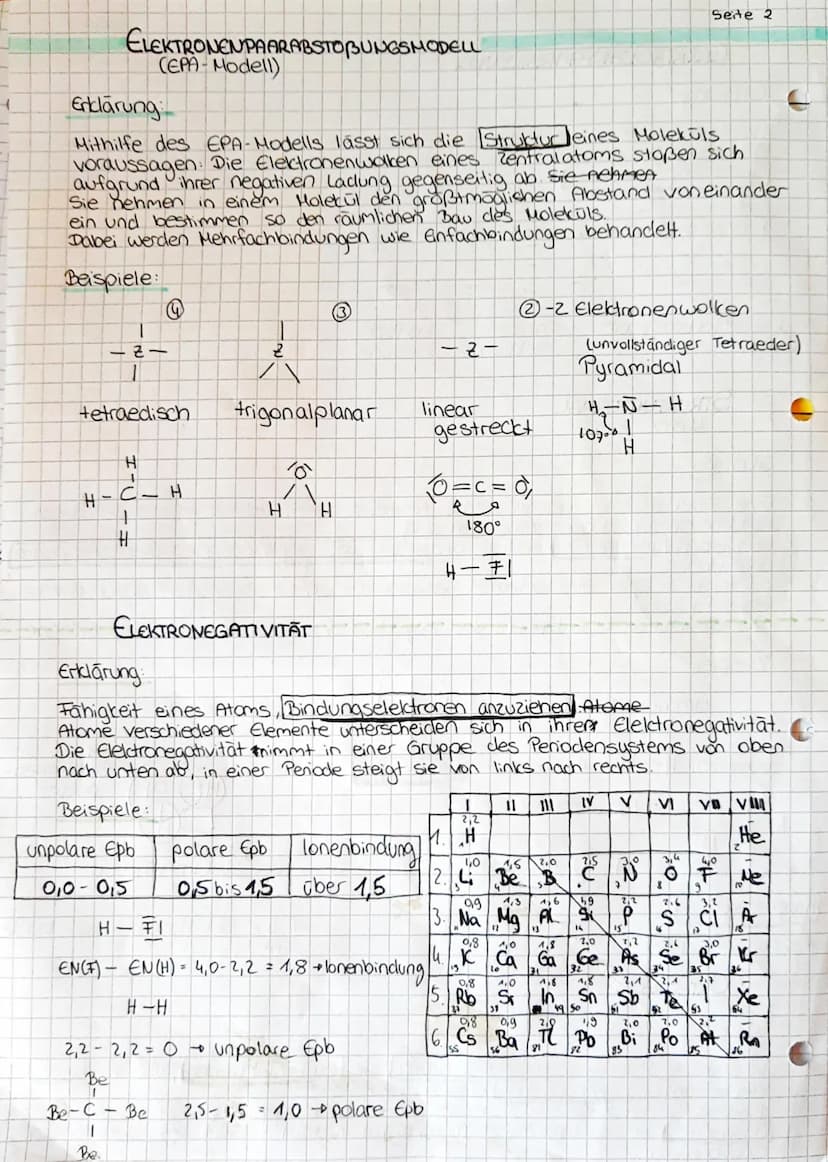 Seite 2
ELEKTRONENPAARABSTOßUNGSMODELL
(EPA-Modell)
Erklärung:
Mithilfe des EPA-Modells lässt sich die Struktur eines Moleküls
voraussagen. Die Elektronenwolken eines Zentralatoms stoßen sich
aufgrund ihrer negativen Ladung gegenseitig ab. Sie nehmen
Sie nehmen in einem Molekül den größtmöglichen Abstand voneinander
ein und bestimmen so den räumlichen Bau des Moleküls.
Dabei werden Mehrfachbindungen wie Einfachbindungen behandelt.
Beispiele:
④ ③ ② -2 Elektronenwolken
– Z – Z – Z – (unvollständiger Tetraeder)
Pyramidal
tetraedisch trigonalplanar linear
gestreckt
H–N–H
107°
H
H
H–C–H
H
O
H H
O=C=O
180°
H–F
ELEKTRONEGATIVITÄT
Erklärung:
Fähigkeit eines Atoms, Bindungselektronen anzuziehen. Atome
Atome verschiedener Elemente unterscheiden sich in ihrer Elektronegativität.
Die Elektronegativität nimmt in einer Gruppe des Periodensystems von oben
nach unten ab, in einer Periode steigt sie von links nach rechts.
Beispiele:
unpolare Epb polare Epb Ionenbindung
0,0-0,5 0,5 bis 1,5 über 1,5
H–F
EN(F) – EN(H) = 4,0-2,2 = 1,8 → Ionenbindung
H–H
2,2 – 2,2 = 0 → unpolare Epb
Be
Be–C–Be 2,5-1,5 = 1,0 → polare Epb
Be
I II III IV V VI VII VIII
1. H 2,2 He
2. Li 1,0 Be 1,5 B 2,0 C 2,5 N 3,0 O 3,4 F 4,0 Ne
3. Na 0,9 Mg 1,3 Al 1,6 Si 1,9 P 2,2 S 2,6 Cl 3,2 Ar
4. K 0,8 Ca 1,0 Ga 1,8 Ge 2,0 As 2,2 Se 2,6 Br 3,0 Kr
5. Rb 0,8 Sr 1,0 In 1,8 Sn 1,8 Sb 2,1 Te 2,1 I 2,7 Xe
6. Cs 0,8 Ba 0,9 Tl 2,0 Pb 1,9 Bi 2,0 Po 2,0 At 2,2 Rn